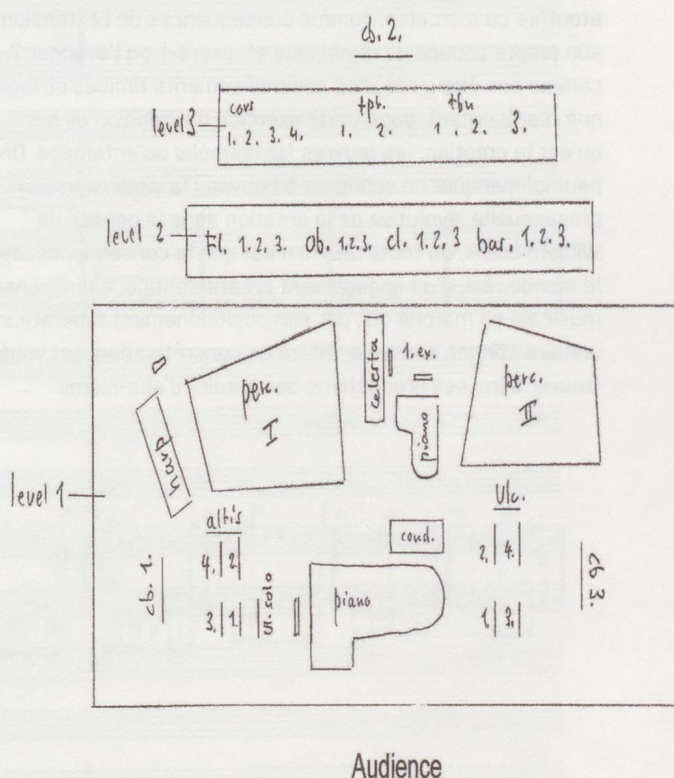 cb. 2.
level 3
cors tpt. tbn
1. 2. 3. 4. 1. 2. 1. 2. 3.
level 2
Fl. 1.2.3. Ob. 1.2.3. cl. 1.2.3 bas. 1.2.3.
level 1
harp
perc. I
celesta
1. ex.
piano
perc. II
altis
4. 2.
3. 1.
cb. 1.
Vl. solo
cond.
piano
Vlc.
2. 4.
1. 3.
cb 3.
Audience